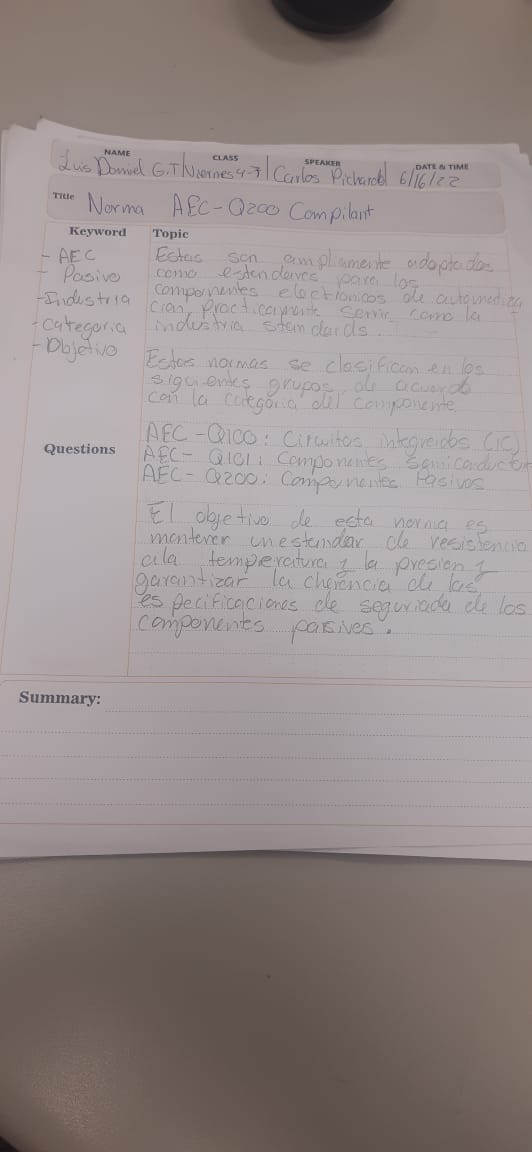 NAME CLASS SPEAKER DATE & TIME
Luis Daniel G.T Viernes 4-7 Carlos Pichardo 6/16/22
Title Norma AEC-Q200 Compilant
Keyword Topic
- AEC
- Pasivo
- Industria
- Categoria
- Objetivo
Estas son ampliamente adoptadas
como estandares para los
componentes electronicos de automatiza
cion, Practicamente servir como la
industria standards.
Estas normas se clasifican en los
siguientes grupos de acuerdo
con la categoria del componente
Questions
AEC-Q100: Circuitos integrados (IC)
AEC- Q101: Componentes Semiconductor
AEC- Q200: Componentes Pasivos
El objetivo de esta norma es
mantener un estandar de resistencia
a la temperatura y la presion y
garantizar la cherencia de las
especificaciones de seguriada de los
componentes pasivos.
Summary: